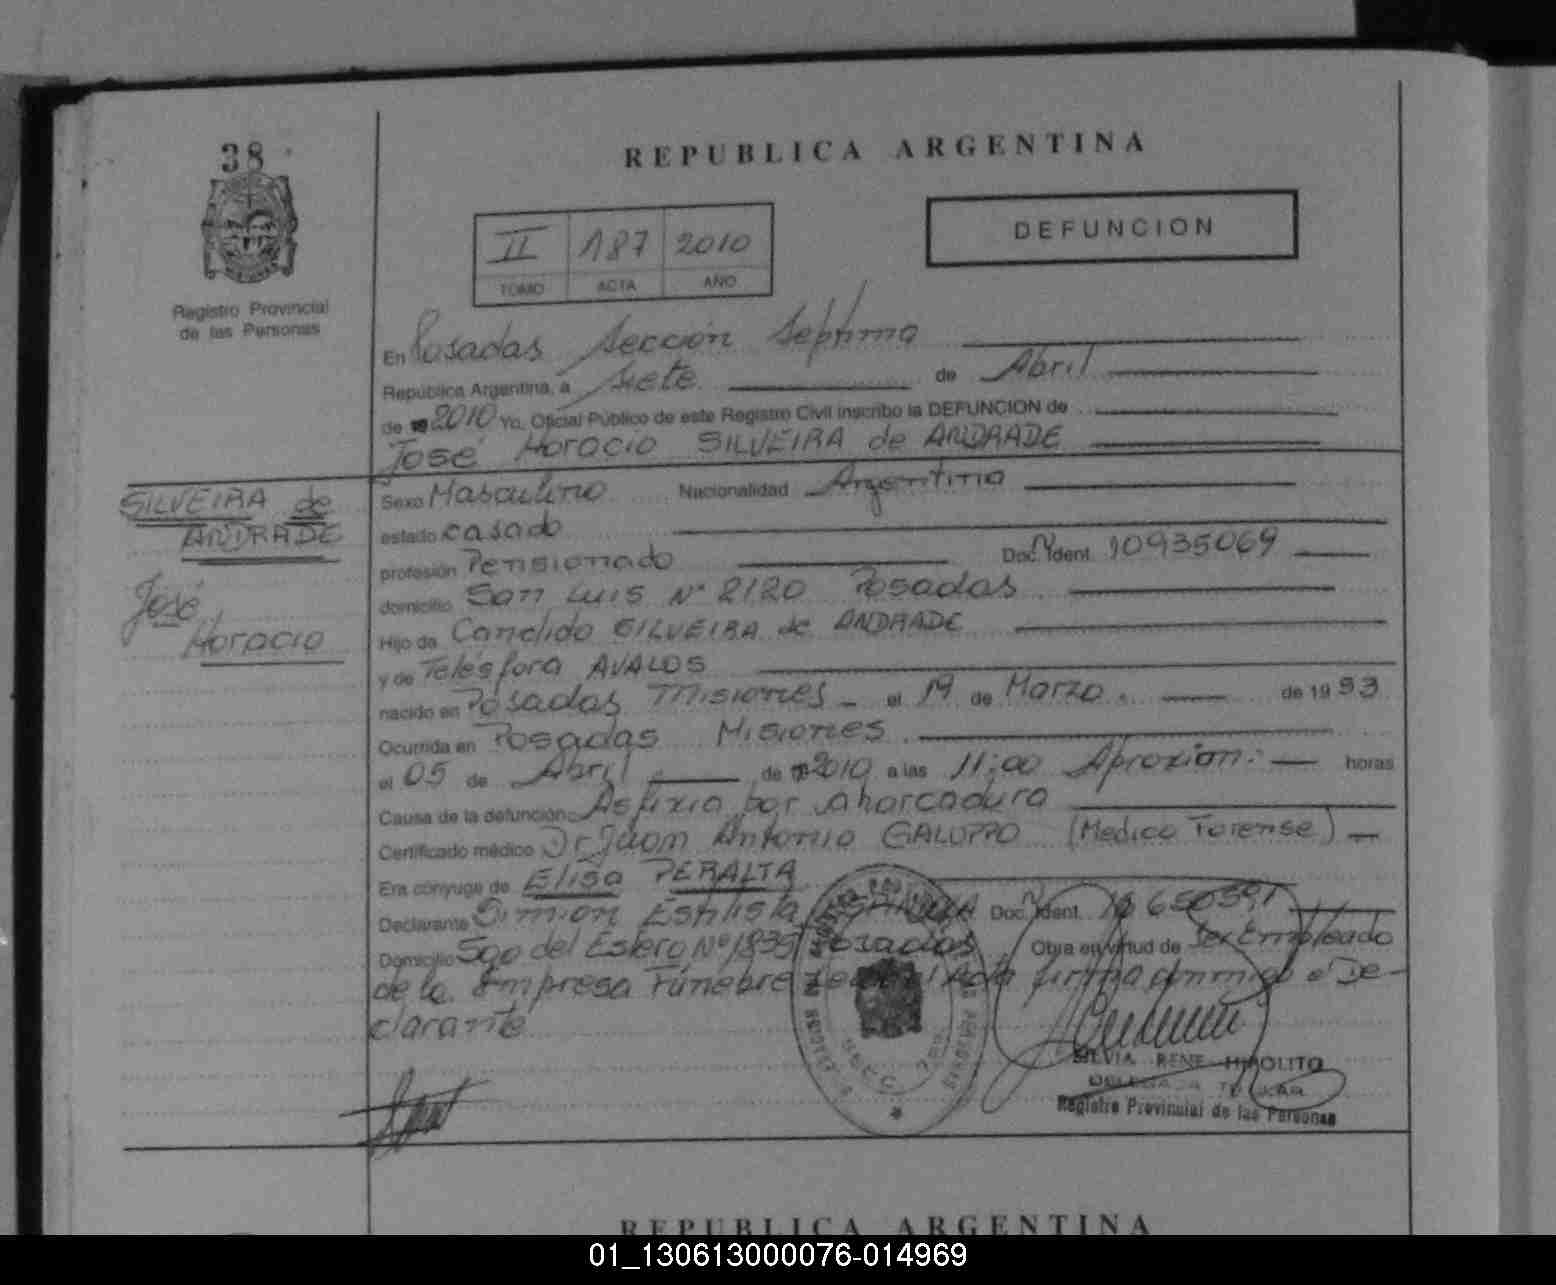 38
REPUBLICA ARGENTINA
II 187 2010
TOMO ACTA AÑO
DEFUNCION
Registro Provincial
de las Personas
En Posadas Sección Septima
República Argentina, a Siete de Abril
de 19 2010 Yo, Oficial Público de este Registro Civil inscribo la DEFUNCION de
José Horacio SILVEIRA de ANDRADE
SILVEIRA de
ANDRADE
José
Horacio
Sexo Masculino Nacionalidad Argentina
estado casado
profesión Pensionado Doc. N Ident. 10935069
domicilio San Luis Nº 2120 Posadas
Hijo de Candido SILVEIRA de ANDRADE
y de Telésfora AVALOS
nacido en Posadas Misiones el 19 de Marzo de 19 53
Ocurrida en Posadas Misiones
el 05 de Abril de 19 2010 a las 11:00 Aproxim: horas
Causa de la defunción Asfixia por ahorcadura
Certificado médico Dr Juan Antonio GALUPPO (Medico Forense)
Era cónyuge de Elisa PERALTA
Declarante Simion Estilista Doc. N Ident.
Domicilio Sgo del Estero Nº 1835 Posadas Obra en virtud de Ser Empleado
de la Empresa Fúnebre Acta firma conmigo el De-
clarante
SILVIA RENE HIPOLITO
DELEGADA TITULAR
Registro Provincial de las Personas
REPUBLICA ARGENTINA
01_130613000076-014969